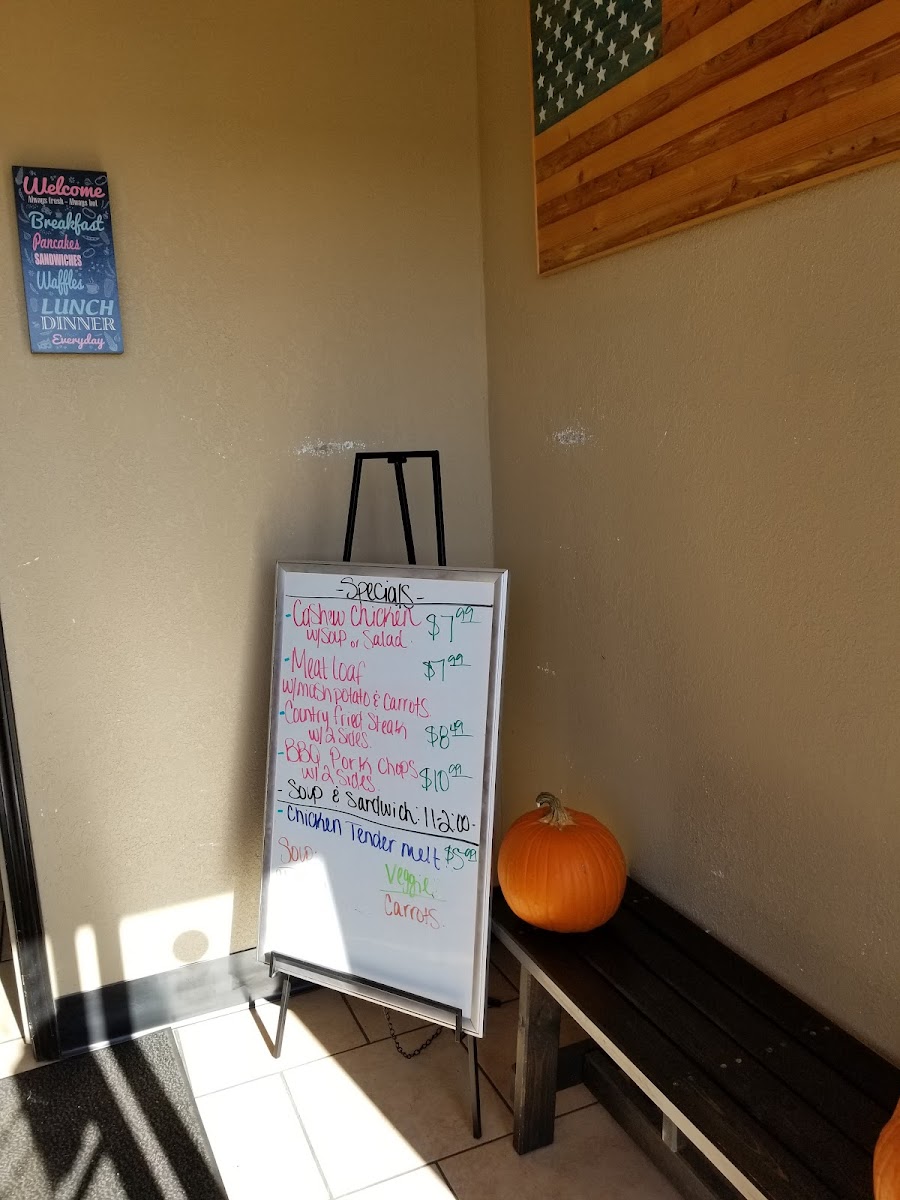 Welcome
Always fresh - Always hot
Breakfast
Pancakes
SANDWICHES
Waffles
LUNCH
DINNER
Everyday
- Specials -
- Cashew Chicken $7.99
w/Soup or Salad
- Meat Loaf $7.99
w/mash potato & Carrots
- Country Fried Steak
w/2 Sides. $8.49
- BBQ Pork Chops
w/2 Sides. $10.99
- Soup & Sandwich: 11-2:00-
- Chicken Tender melt $5.99
Soup:
Veggie:
Carrots.